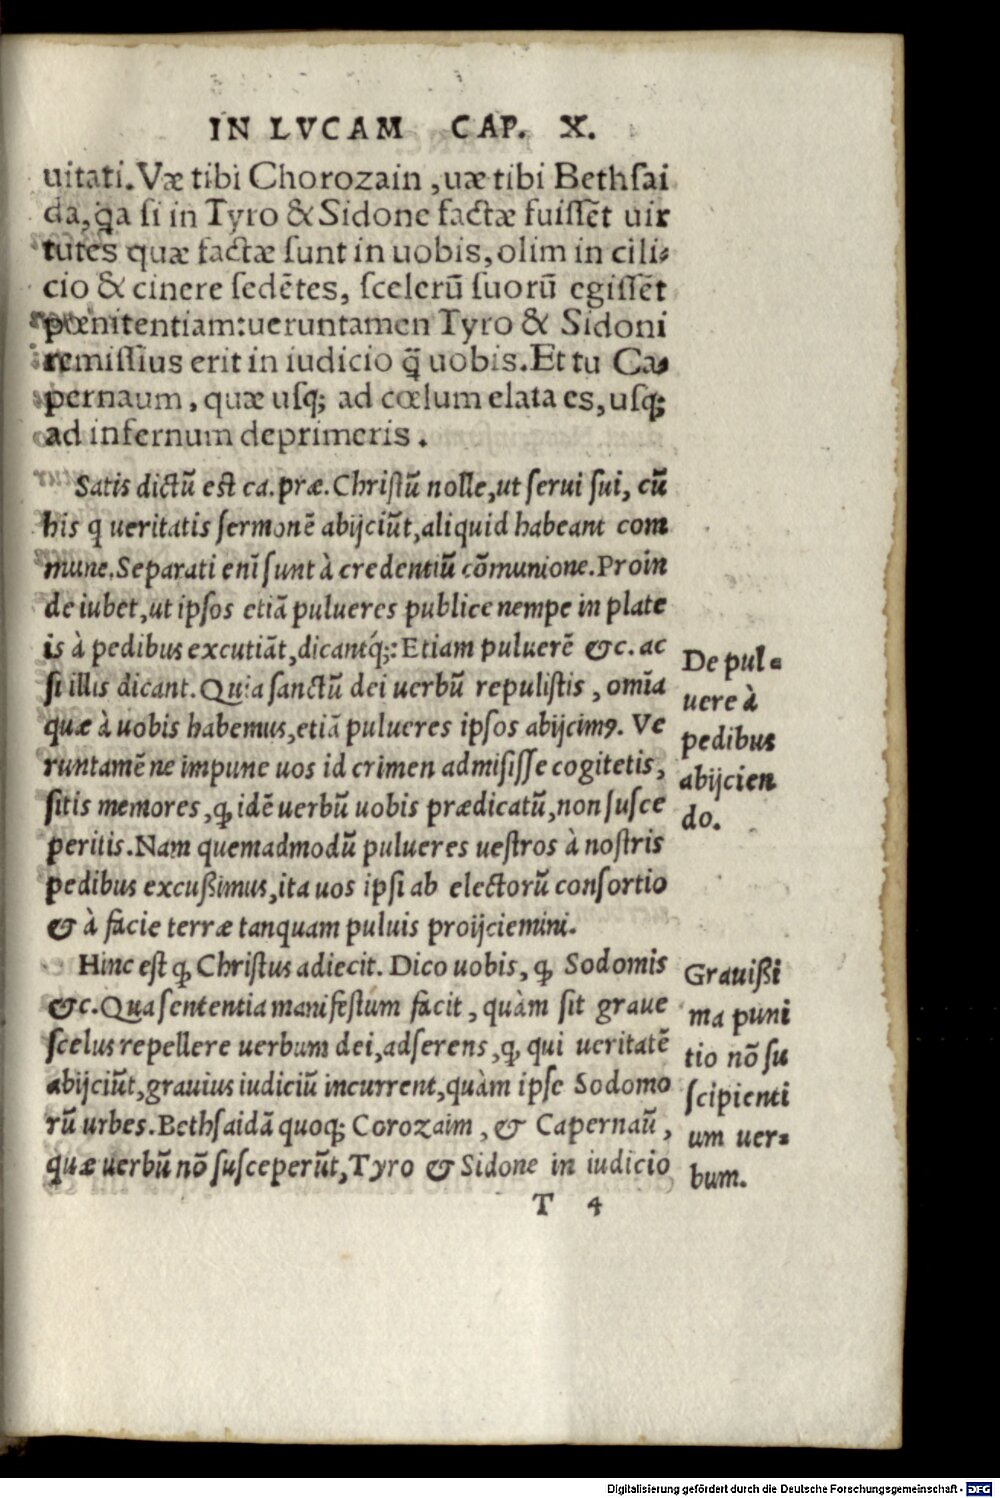 IN LVCAM CAP. X.
uitati. Væ tibi Chorozain, uæ tibi Bethsai
da, ꝗa si in Tyro & Sidone factæ fuissēt uir
tutes quæ factæ sunt in uobis, olim in cili-
cio & cinere sedētes, scelerū suorū egissēt
pœnitentiam: ueruntamen Tyro & Sidoni
remissius erit in iudicio ꝗ̃ uobis. Et tu Ca-
pernaum, quæ usq; ad cœlum elata es, usq;
ad infernum deprimeris.
Satis dictū est ca. præ. Christū nolle, ut serui sui, cū
his q ueritatis sermonē abijciūt, aliquid habeant com
mune. Separati enī sunt à credentiū cōmunione. Proin
de iubet, ut ipsos etiā pulueres publice nempe in plate
is à pedibus excutiāt, dicantq́;: Etiam puluerē &c. ac
si illis dicant. Quia sanctū dei uerbū repulistis, omīa
quæ à uobis habemus, etiā pulueres ipsos abijcimꝰ. Ve
runtamē ne impune uos id crimen admisisse cogitetis,
sitis memores, ꝙ idē uerbū uobis prædicatū, non susce
peritis. Nam quemadmodū pulueres uestros à nostris
pedibus excußimus, ita uos ipsi ab electorū consortio
& à facie terræ tanquam puluis proijciemini.
Hinc est ꝙ Christus adiecit. Dico uobis, ꝙ Sodomis
&c. Qua sententia manifestum facit, quàm sit graue
scelus repellere uerbum dei, adserens, ꝙ qui ueritatē
abijciūt, grauius iudiciū incurrent, quàm ipse Sodomo
rū urbes. Bethsaidā quoq; Corozaim, & Capernaū,
quæ uerbū nō susceperūt, Tyro & Sidone in iudicio
T 4
De pul-
uere à
pedibus
abijcien
do.
Grauißi
ma puni
tio nō su
scipienti
um uer-
bum.
Digitalisierung gefördert durch die Deutsche Forschungsgemeinschaft - DFG